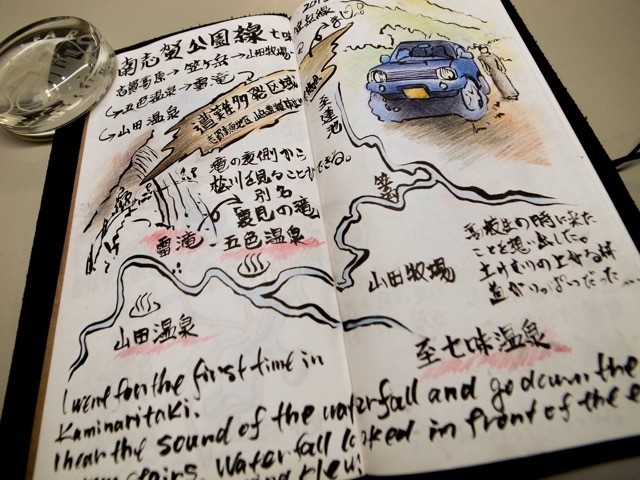 南志賀公園線
志賀高原→笠ヶ岳→山田牧場
↳五色温泉→雷滝
↳山田温泉
遭難多発区域
滝の裏側から
松川を見ることができる。
別名
裏見の滝
雷滝
五色温泉
山田温泉
至蓮池
笠
高校生の時に来た
ことを想い出した。
土けむりの上がる林
道がいっぱいだった…
山田牧場
至七味温泉
I went for the first time in
Kaminaritaki.
I hear the sound of the waterfall and go down the
stairs. Waterfall looked in front of the